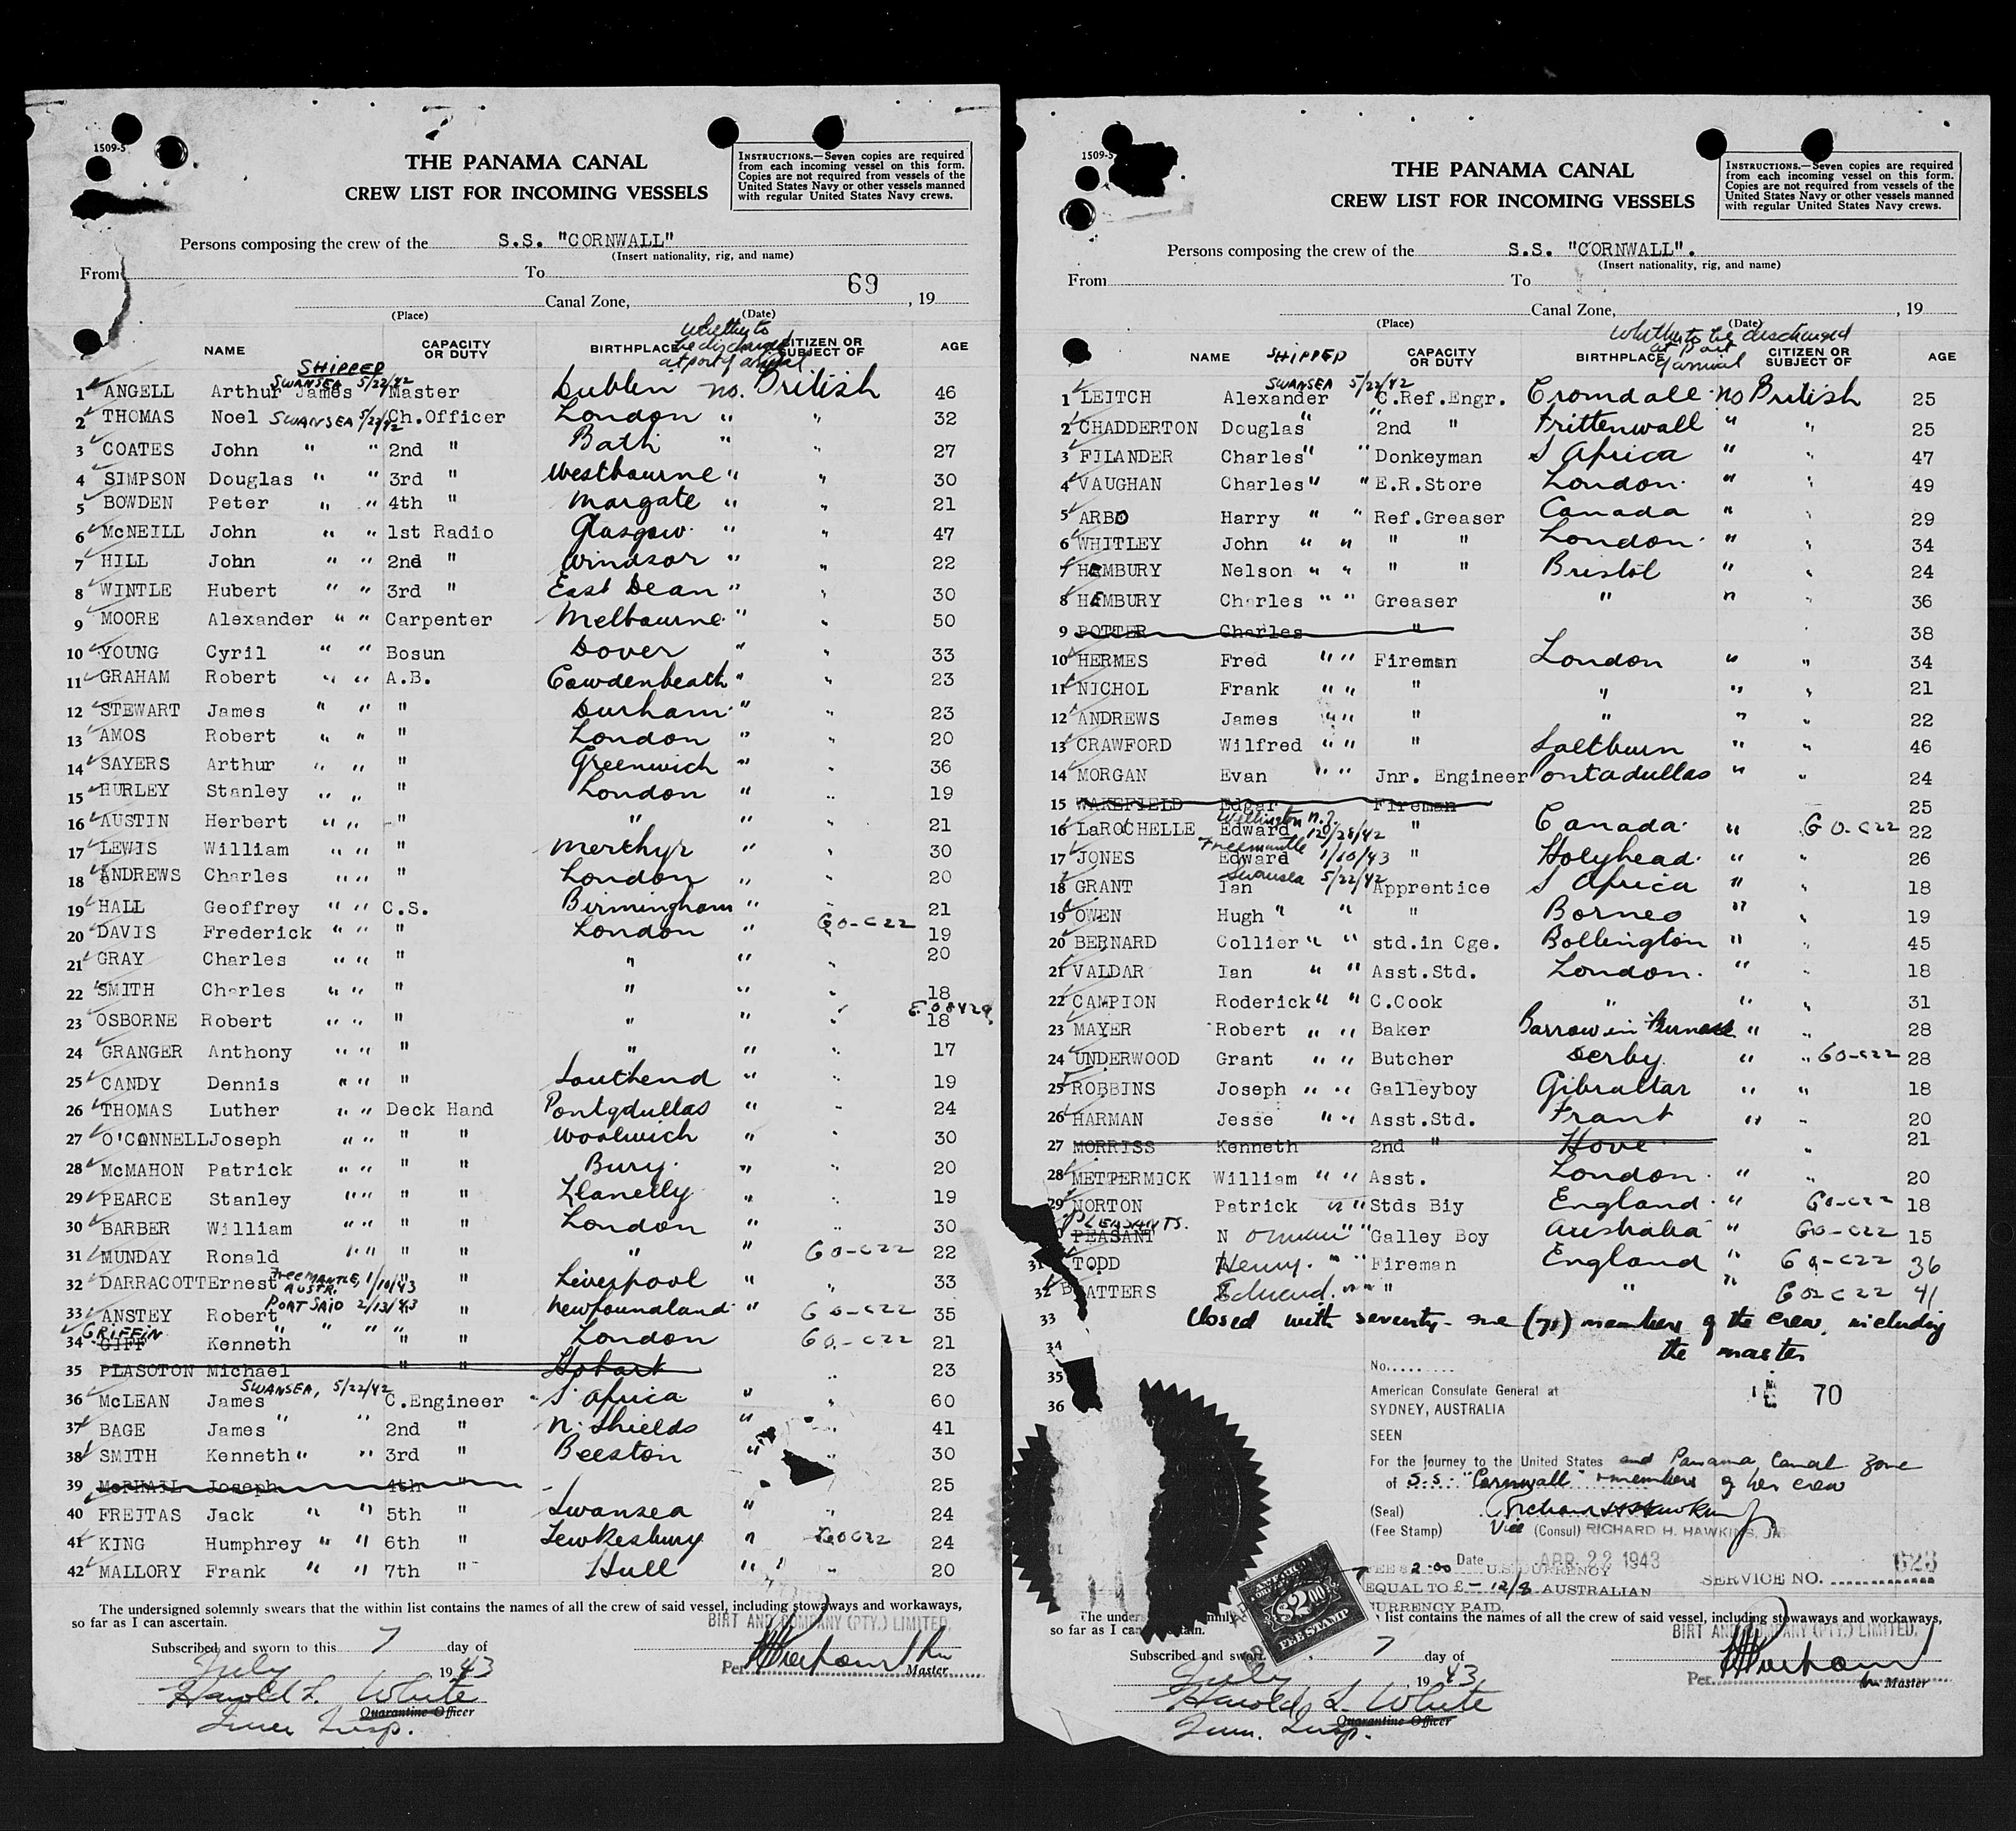 1509-S
THE PANAMA CANAL
CREW LIST FOR INCOMING VESSELS
INSTRUCTIONS.—Seven copies are required
from each incoming vessel on this form.
Copies are not required from vessels of the
United States Navy or other vessels manned
with regular United States Navy crews.
Persons composing the crew of the S.S. "CORNWALL"
(Insert nationality, rig, and name)
From To
69
Canal Zone, , 19
(Place) (Date)
whether to
be discharged
at port of arrival
NAME SHIPPED CAPACITY OR DUTY BIRTHPLACE CITIZEN OR SUBJECT OF AGE
SWANSEA 5/22/42
1 ANGELL Arthur James Master Dublin no. British 46
2 THOMAS Noel SWANSEA 5/22/42 Ch.Officer London " " 32
3 COATES John " " 2nd " Bath " " 27
4 SIMPSON Douglas " " 3rd " Westbourne " " 30
5 BOWDEN Peter " " 4th " Margate " " 21
6 McNEILL John " " 1st Radio Glasgow " " 47
7 HILL John " " 2nd " Windsor " " 22
8 WINTLE Hubert " " 3rd " East Dean " " 30
9 MOORE Alexander " " Carpenter Melbourne " " 50
10 YOUNG Cyril " " Bosun Dover " " 33
11 GRAHAM Robert " " A.B. Cowdenbeath " " 23
12 STEWART James " " " Durham " " 23
13 AMOS Robert " " " London " " 20
14 SAYERS Arthur " " " Greenwich " " 36
15 HURLEY Stanley " " " London " " 19
16 AUSTIN Herbert " " " " " " 21
17 LEWIS William " " " Merthyr " " 30
18 ANDREWS Charles " " " London " " 20
19 HALL Geoffrey " " C.S. Birmingham " " 21
20 DAVIS Frederick " " " London " 60-C22 19
21 GRAY Charles " " " " " " 20
22 SMITH Charles " " " " " " 18
23 OSBORNE Robert " " " " " " 18
24 GRANGER Anthony " " " " " " 17
25 CANDY Dennis " " " Southend " " 19
26 THOMAS Luther " " Deck Hand Pontydullas " " 24
27 O'CONNELL Joseph " " " " Woolwich " " 30
28 McMAHON Patrick " " " " Bury " " 20
29 PEARCE Stanley " " " " Llanelly " " 19
30 BARBER William " " " " London " " 30
31 MUNDAY Ronald " " " " " " 60-C22 22
32 DARRACOTT Ernest FREEMANTLE, AUSTR. 1/10/43 " " Liverpool " " 33
PORT SAID 2/13/43
33 ANSTEY Robert " Newfoundland " 60-C22 35
GRIFFIN
34 GIFF Kenneth " " " " " " London " 60-C22 21
35 PLASOTON Michael " " Hobart " 23
SWANSEA, 5/22/42
36 McLEAN James C.Engineer S. Africa " " 60
37 BAGE James " " 2nd " N. Shields " " 41
38 SMITH Kenneth " " 3rd " Beeston " " 30
39 McPHAIL Joseph 4th " 25
40 FREITAS Jack " " 5th " Swansea " " 24
41 KING Humphrey " " 6th " Tewkesbury " 60C22 24
42 MALLORY Frank " " 7th " Hull " " 20
The undersigned solemnly swears that the within list contains the names of all the crew of said vessel, including stowaways and workaways,
so far as I can ascertain.
BIRT AND COMPANY (PTY.) LIMITED.
Subscribed and sworn to this 7 day of
July 1943
Per Master
Harold L. White
Quarantine Officer
Imm. Insp.
1509-S
THE PANAMA CANAL
CREW LIST FOR INCOMING VESSELS
INSTRUCTIONS.—Seven copies are required
from each incoming vessel on this form.
Copies are not required from vessels of the
United States Navy or other vessels manned
with regular United States Navy crews.
Persons composing the crew of the S.S. "CORNWALL".
(Insert nationality, rig, and name)
From To
Canal Zone, , 19
(Place) (Date)
Whether to be discharged
at port
of arrival
NAME SHIPPED CAPACITY OR DUTY BIRTHPLACE CITIZEN OR SUBJECT OF AGE
SWANSEA 5/22/42
1 LEITCH Alexander C.Ref.Engr. Cromdale no British 25
2 CHADDERTON Douglas " " 2nd " Frittenwall " " 25
3 FILANDER Charles " " Donkeyman S Africa " " 47
4 VAUGHAN Charles " " E.R.Store London " " 49
5 ARBO Harry " " Ref.Greaser Canada " " 29
6 WHITLEY John " " " " London " " 34
7 HEMBURY Nelson " " " " Bristol " " 24
8 HEMBURY Charles " " Greaser " " " 36
9 POTTER Charles " 38
10 HERMES Fred " " Fireman London " " 34
11 NICHOL Frank " " " " " " 21
12 ANDREWS James " " " " " " 22
13 CRAWFORD Wilfred " " " Saltburn " " 46
14 MORGAN Evan " " Jnr. Engineer Pontadullas " " 24
15 WAKEFIELD Edgar Fireman 25
Wellington N.Z.
16 LaROCHELLE Edward 12/28/42 " Canada " 60-C22 22
Freemantle
17 JONES Edward 1/10/43 " Holyhead " " 26
Swansea 5/22/42
18 GRANT Ian Apprentice S Africa " " 18
19 OWEN Hugh " " " Borneo " " 19
20 BERNARD Collier " " std.in Cge. Bollington " " 45
21 VALDAR Ian " " Asst.Std. London " " 18
22 CAMPION Roderick " " C.Cook " " " 31
23 MAYER Robert " " Baker Barrow in Furness " " 28
24 UNDERWOOD Grant " " Butcher Derby " " 60-C22 28
25 ROBBINS Joseph " " Galleyboy Gibraltar " " 18
26 HARMAN Jesse " " Asst.Std. Frant " " 20
27 MORRISS Kenneth 2nd " Hove " 21
28 METTERMICK William " " Asst. London " " 20
29 NORTON Patrick " " Stds Biy England " 60-C22 18
PLEASANTS.
PEASANT Norman " " Galley Boy Australia " 60-C22 15
31 TODD Henry " " Fireman England " 60-C22 36
32 BATTERS Edward " " " " " 60-C22 41
33 Closed with seventy-one (71) members of the crew, including
34 the master
35
36
No.
American Consulate General at
SYDNEY, AUSTRALIA
70
SEEN
For the journey to the United States and Panama Canal Zone
of S.S. "Cornwall" members of her crew
(Seal)
(Fee Stamp) Vice (Consul) RICHARD H. HAWKINS, JR.
Date APR 22 1943
FEE $2.00 U.S. CURRENCY
EQUAL TO £- 12/8 AUSTRALIAN
CURRENCY PAID.
SERVICE NO. 623
$2.00
FEE STAMP
The unders nly list contains the names of all the crew of said vessel, including stowaways and workaways,
so far as I can ascertain.
BIRT AND COMPANY (PTY.) LIMITED.
Subscribed and sworn 7 day of
July, 1943,
Per Master
Harold L. White
Quarantine Officer
Imm. Insp.